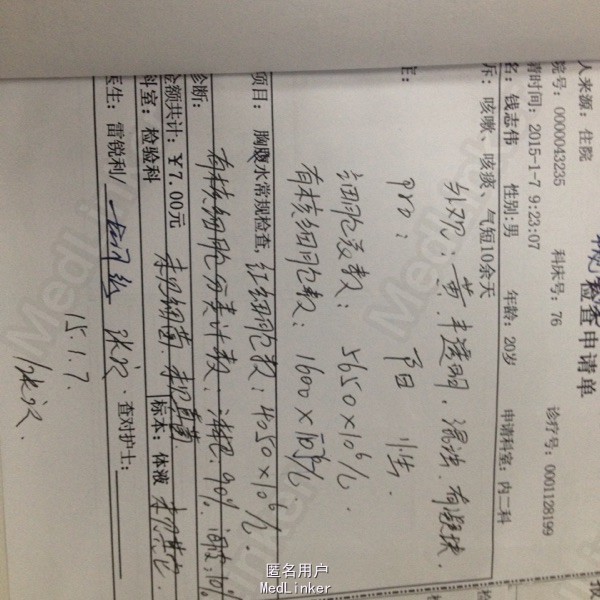 检查申请单
人来源: 住院
院号: 0000043235 科床号: 76 诊疗号: 0001128199
请时间: 2015-1-7 9:23:07
名: 钱志伟 性别:男 年龄: 20岁 申请科室: 内二科
诉: 咳嗽、咳痰、气短10余天
外观: 黄.半透明.混浊.有凝块.
pro: 阳性
细胞总数: 5650×10⁶/L.
有核细胞数: 1600×10⁶/L
项目: 胸腹水常规检查, 红细胞数: 4050×10⁶/L.
有核细胞分类计数: 淋巴: 90% 间皮: 10%
诊断:
金额共计: ￥7.00元 未见细菌. 未见真菌
科室: 检验科 标本: 体液
医生: 雷锐利/ 查对护士:
15.1.7.
匿名用户
MedLinker